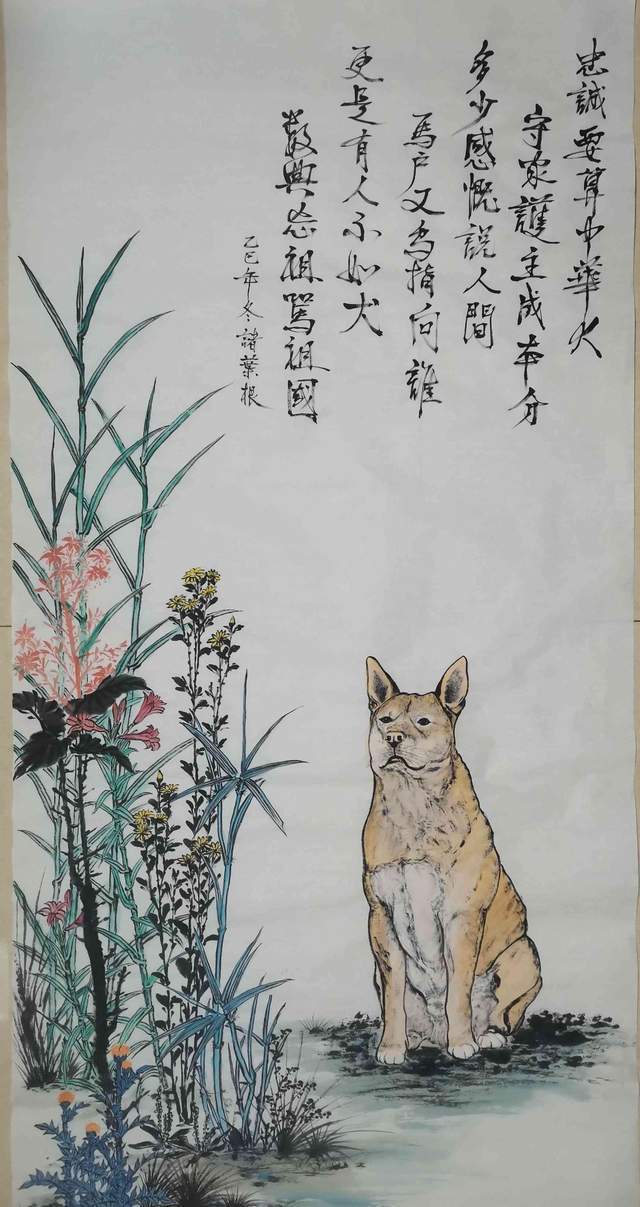 忠誠要算中華犬
守家護主成本分
多少感慨說人間
馬户又鸟指向誰
更是有人不如犬
數典忘祖罵祖國
乙巳年冬諸葉根